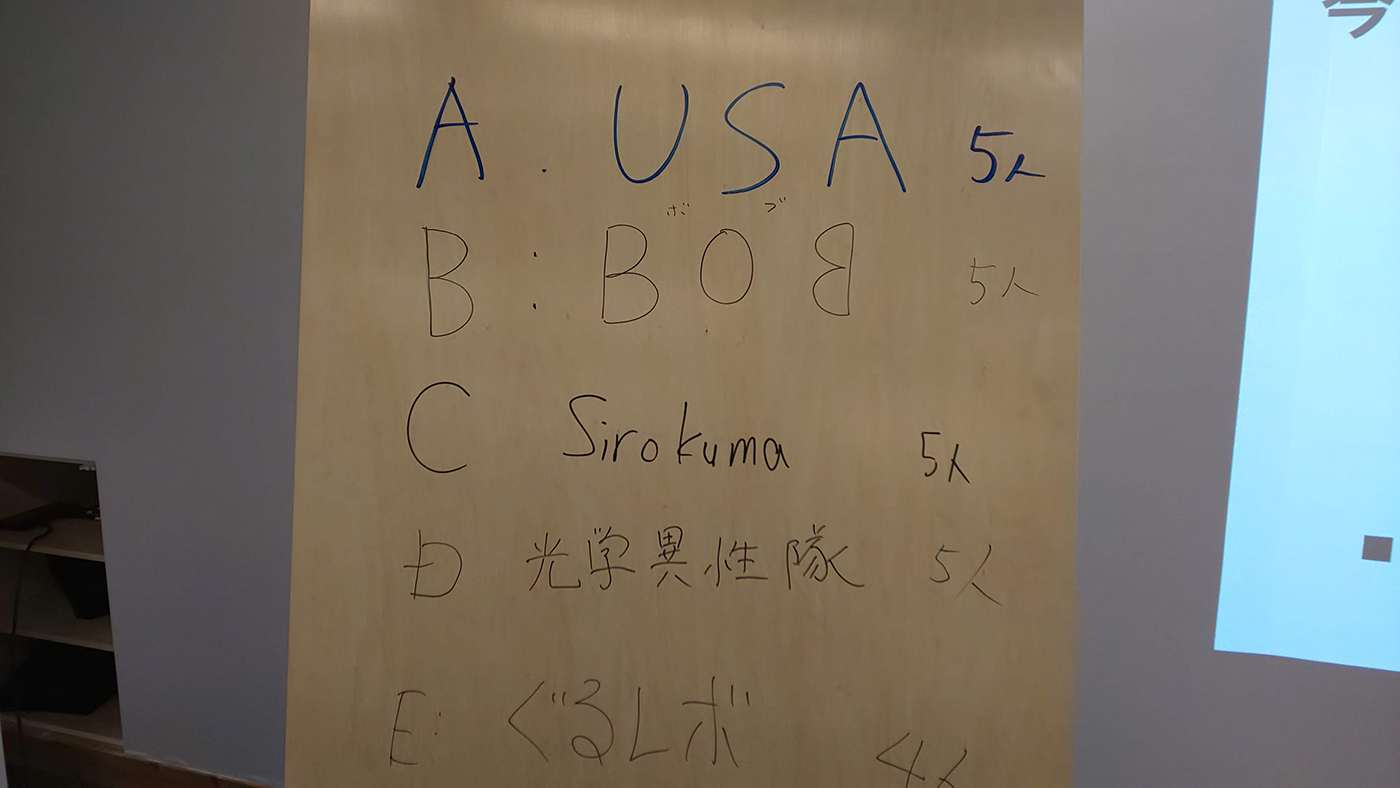 A. USA 5人
ボブ
B: BOB 5人
C Sirokuma 5人
D 光学異性隊 5人
E: ぐるレボ 4人
今